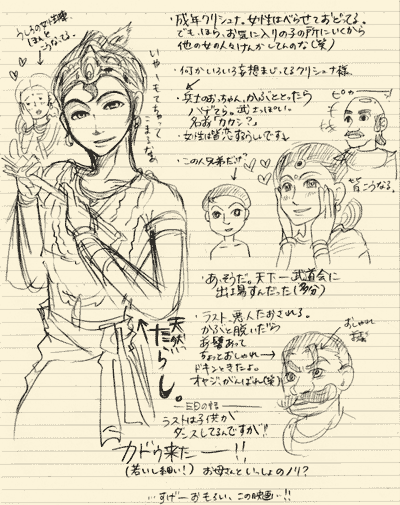 うしろの女性陣
ほんと
こうなてる。
いやーもてちゃって
こまるなあ
・成年クリシュナ。女性はべらせておどってる。
でも、ほら、お気に入りの子の所にいくから
他の女の人々けんかしてんのな(笑)
・何かいろいろ妄想まじってるクリシュナ様、
・兵士のおっちゃん、かぶととったら
ハゲてら。武士っぽい。
名前「カカシ?」
・女性は皆恋するうしですよ
・この人兄弟だけ?
皆こうなる。
・あ、そうだ。天下一武道会に
出る場すんだった(多分)
・ラスト、悪人たおされる。
かぶと脱いだら
お髪あって
ちょっとおしゃれ→
ドキンときたよ。
オヤジ、がんばれ(笑)
おしゃれ
天然
たらし。
ー三日の唇ー
ラストは子供が
ダンスしてるんですが!!
カドゥ来たーー!!
(若いし細い!) お母さんといっしょのノリ?
…すげーおもろい、この映画…!!